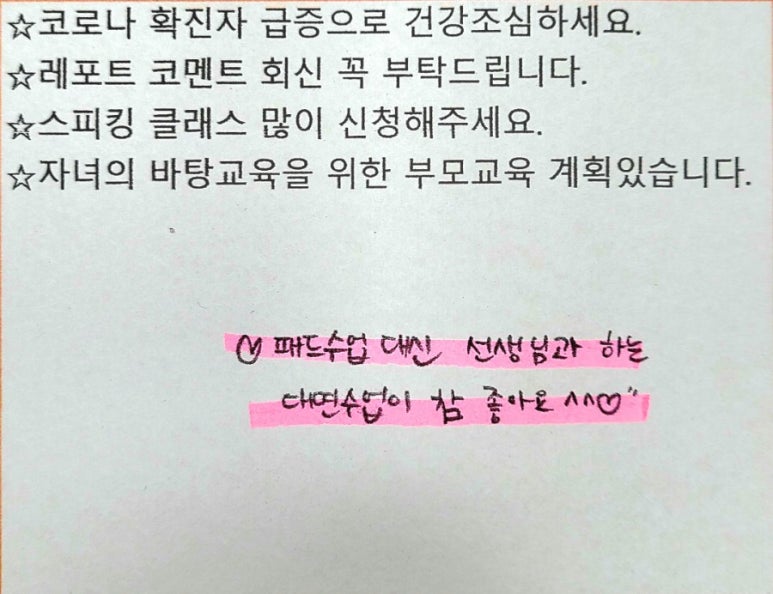 ☆코로나 확진자 급증으로 건강조심하세요.
☆레포트 코멘트 회신 꼭 부탁드립니다.
☆스피킹 클래스 많이 신청해주세요.
☆자녀의 바탕교육을 위한 부모교육 계획있습니다.
♡ 패드수업 대신 선생님과 하는
대면수업이 참 좋아요 ^^♡"